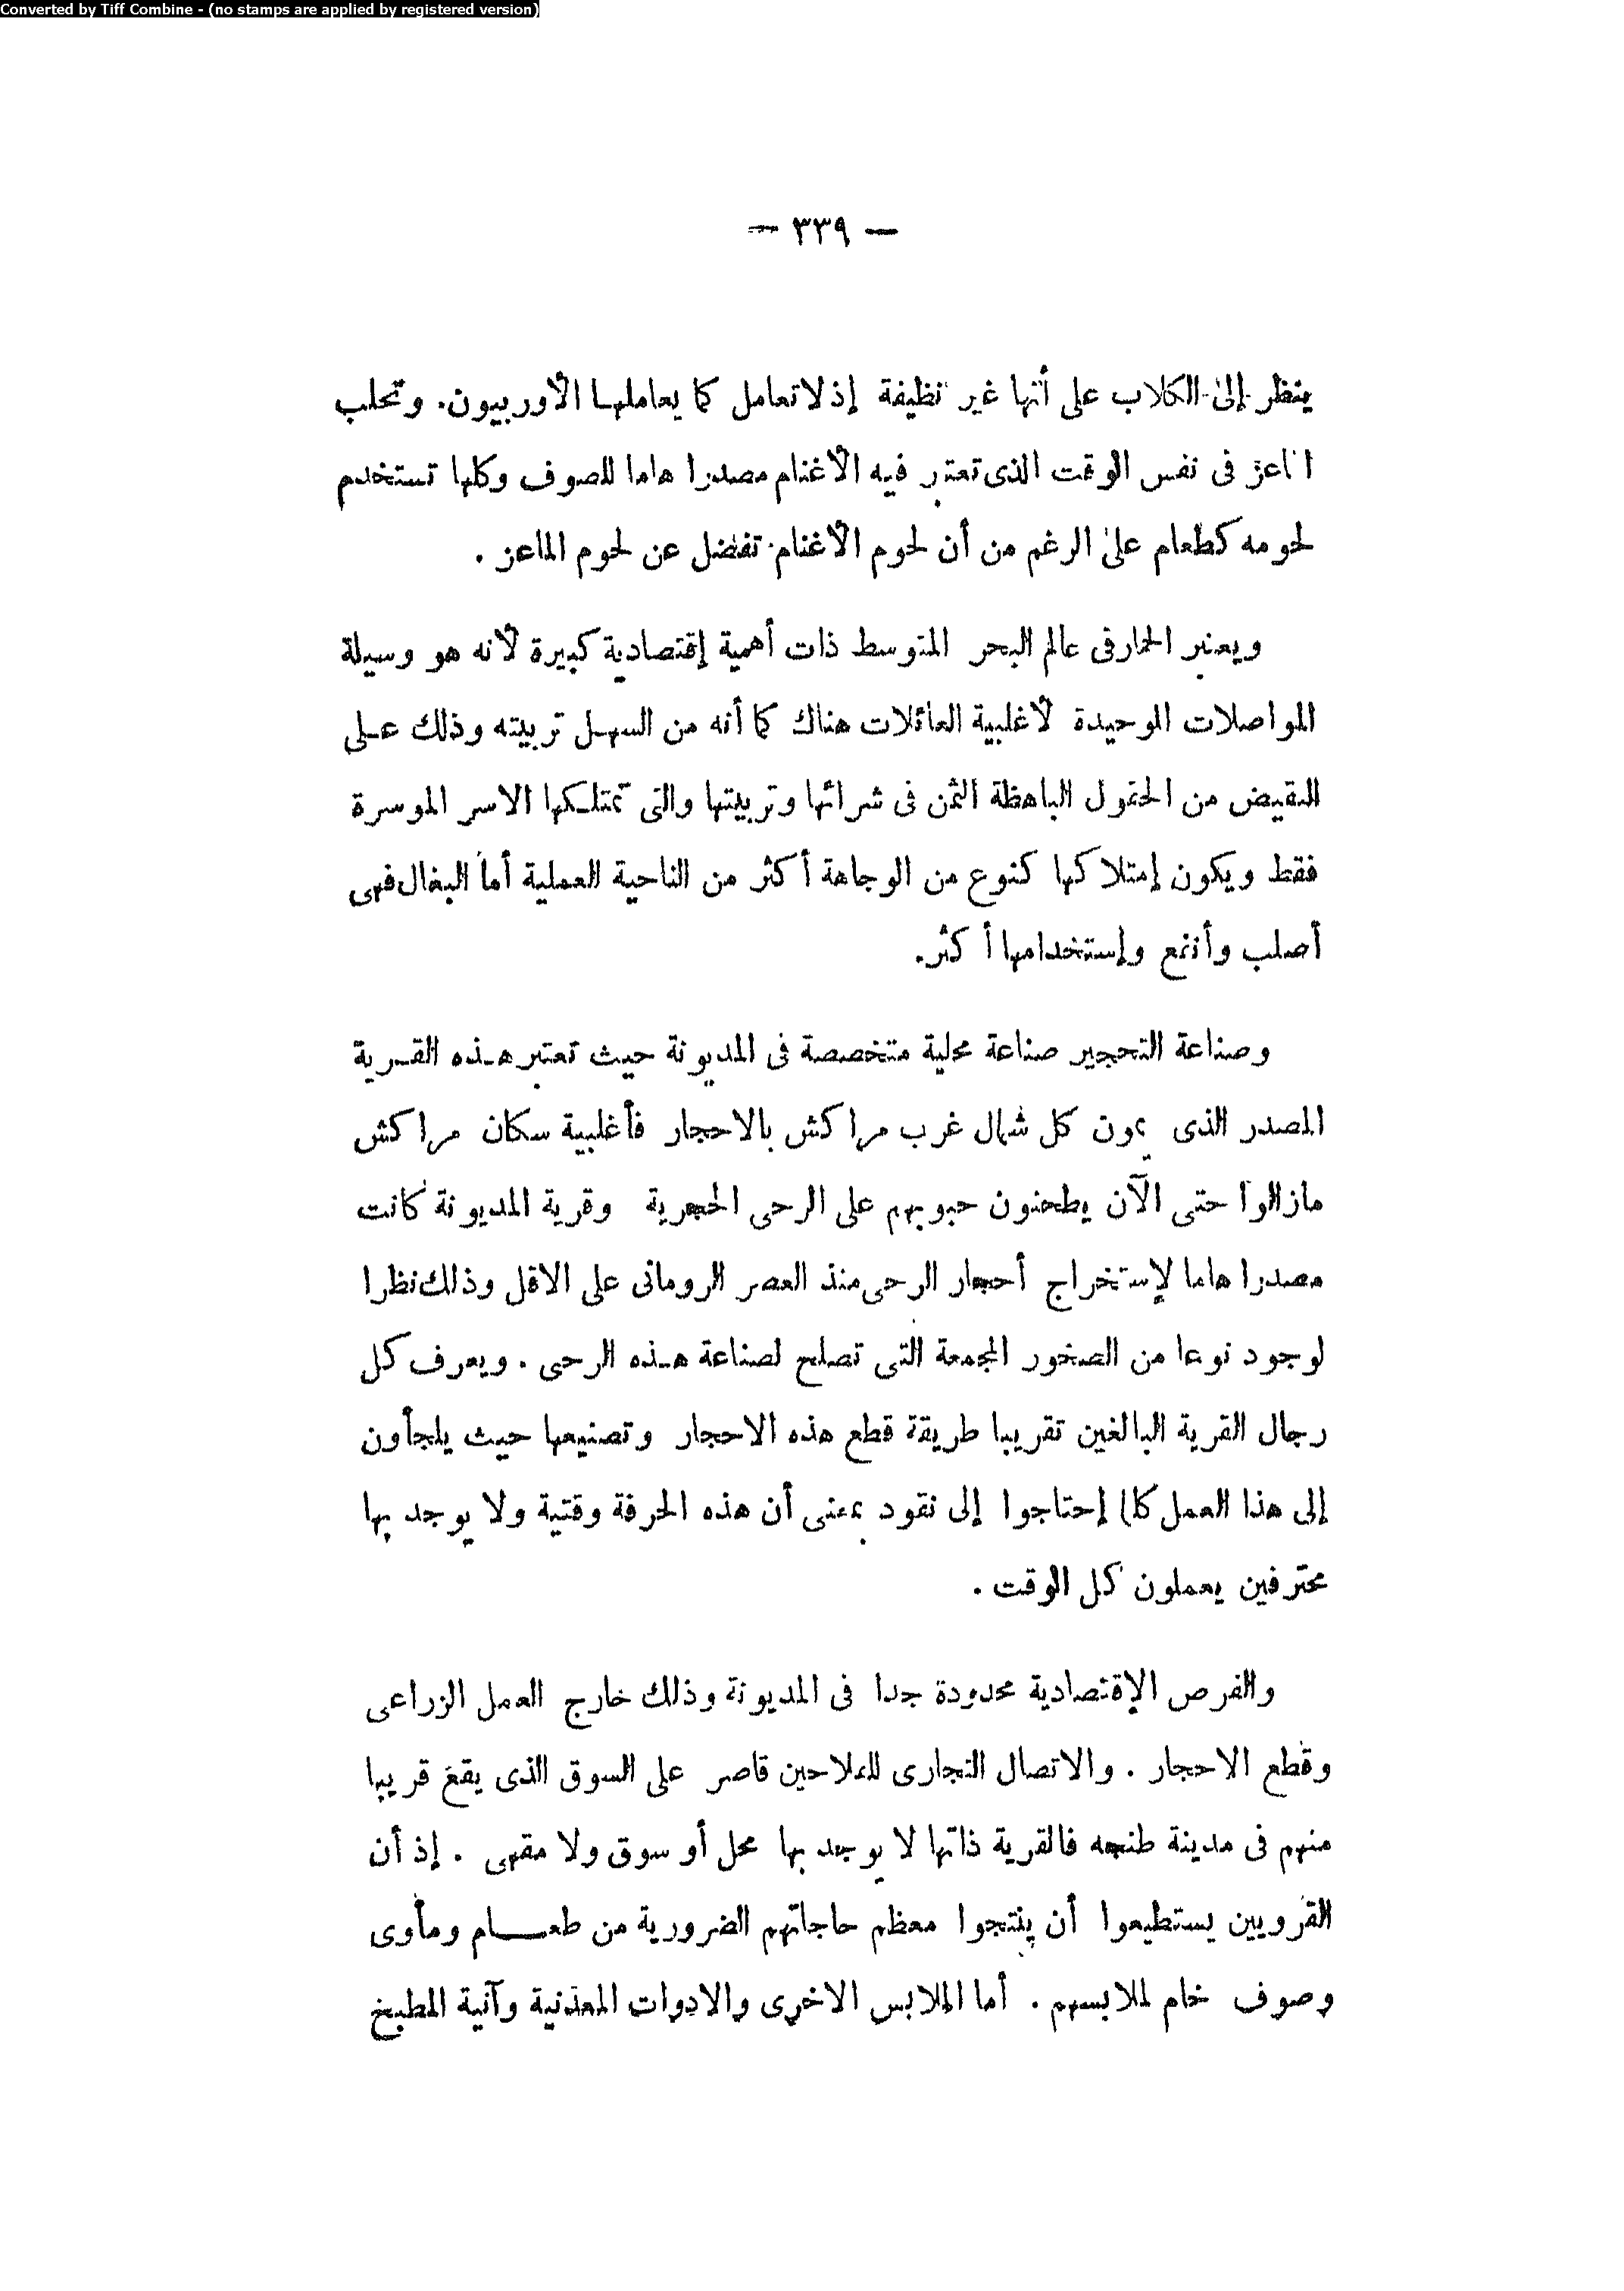 Converted by Tiff Combine - (no stamps are applied by registered version)
— ٣٣٩ —
ينظر إلى الكلاب على أنها غير نظيفة إذ لا تعامل كما يعاملها الأوربيون. وتحلب
الماعز فى نفس الوقت الذى تعتبر فيه الأغنام مصدرا هاما للصوف وكلها تستخدم
لحومه كطعام على الرغم من أن لحوم الأغنام تفضل عن لحوم الماعز .
ويعتبر الحمار فى عالم البحر المتوسط ذات أهمية إقتصادية كبيرة لأنه هو وسيلة
المواصلات الوحيدة لأغلبية العائلات هناك كما أنه من السهل تربيته وذلك على
النقيض من الحقول الباهظة الثمن فى شرائها وتربيتها والتى تمتلكها الاسر الموسرة
فقط ويكون إمتلاكها كنوع من الوجاهة أكثر من الناحية العملية أما البغال فهى
أصلب وأنفع وإستخدامها أكثر.
وصناعة التحجير صناعة محلية متخصصة فى المديونة حيث تعتبر هذه القرية
المصدر الذى يمون كل شمال غرب مراكش بالاحجار فأغلبية سكان مراكش
مازالوا حتى الآن يطحنون حبوبهم على الرحى الحجرية وقرية المديونة كانت
مصدرا هاما لإستخراج أحجار الرحى منذ العصر الرومانى على الاقل وذلك نظرا
لوجود نوعا من الصخور المجمعة التى تصلح لصناعة هذه الرحى . ويعرف كل
رجال القرية البالغين تقريبا طريقة قطع هذه الاحجار وتصنيعها حيث يلجأون
إلى هذا العمل كلما إحتاجوا إلى نقود بمعنى أن هذه الحرفة وقتية ولا يوجد بها
محترفين يعملون كل الوقت .
والفرص الإقتصادية محدودة جدا فى المديونة وذلك خارج العمل الزراعى
وقطع الاحجار . والاتصال التجارى للفلاحين قاصر على السوق الذى يقع قريبا
منهم فى مدينة طنجه فالقرية ذاتها لا يوجد بها محل أو سوق ولا مقهى . إذ أن
القرويين يستطيعوا أن ينتجوا معظم حاجاتهم الضرورية من طعام ومأوى
وصوف خام لملابسهم . أما الملابس الاخرى والادوات المعدنية وآنية المطبخ